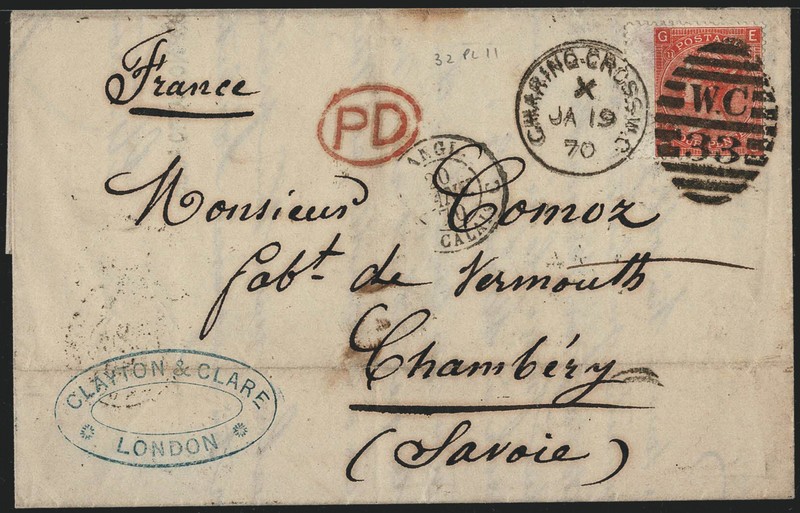 France
32 PL 11
PD
CHARING-CROSS.W.C
X
JA 19
70
G E
POSTAGE
W.C
33
ANGL
CALAIS
Monsieur Comoz
fabt. de Vermouth
Chambéry
(Savoie)
CLAYTON & CLARE
LONDON